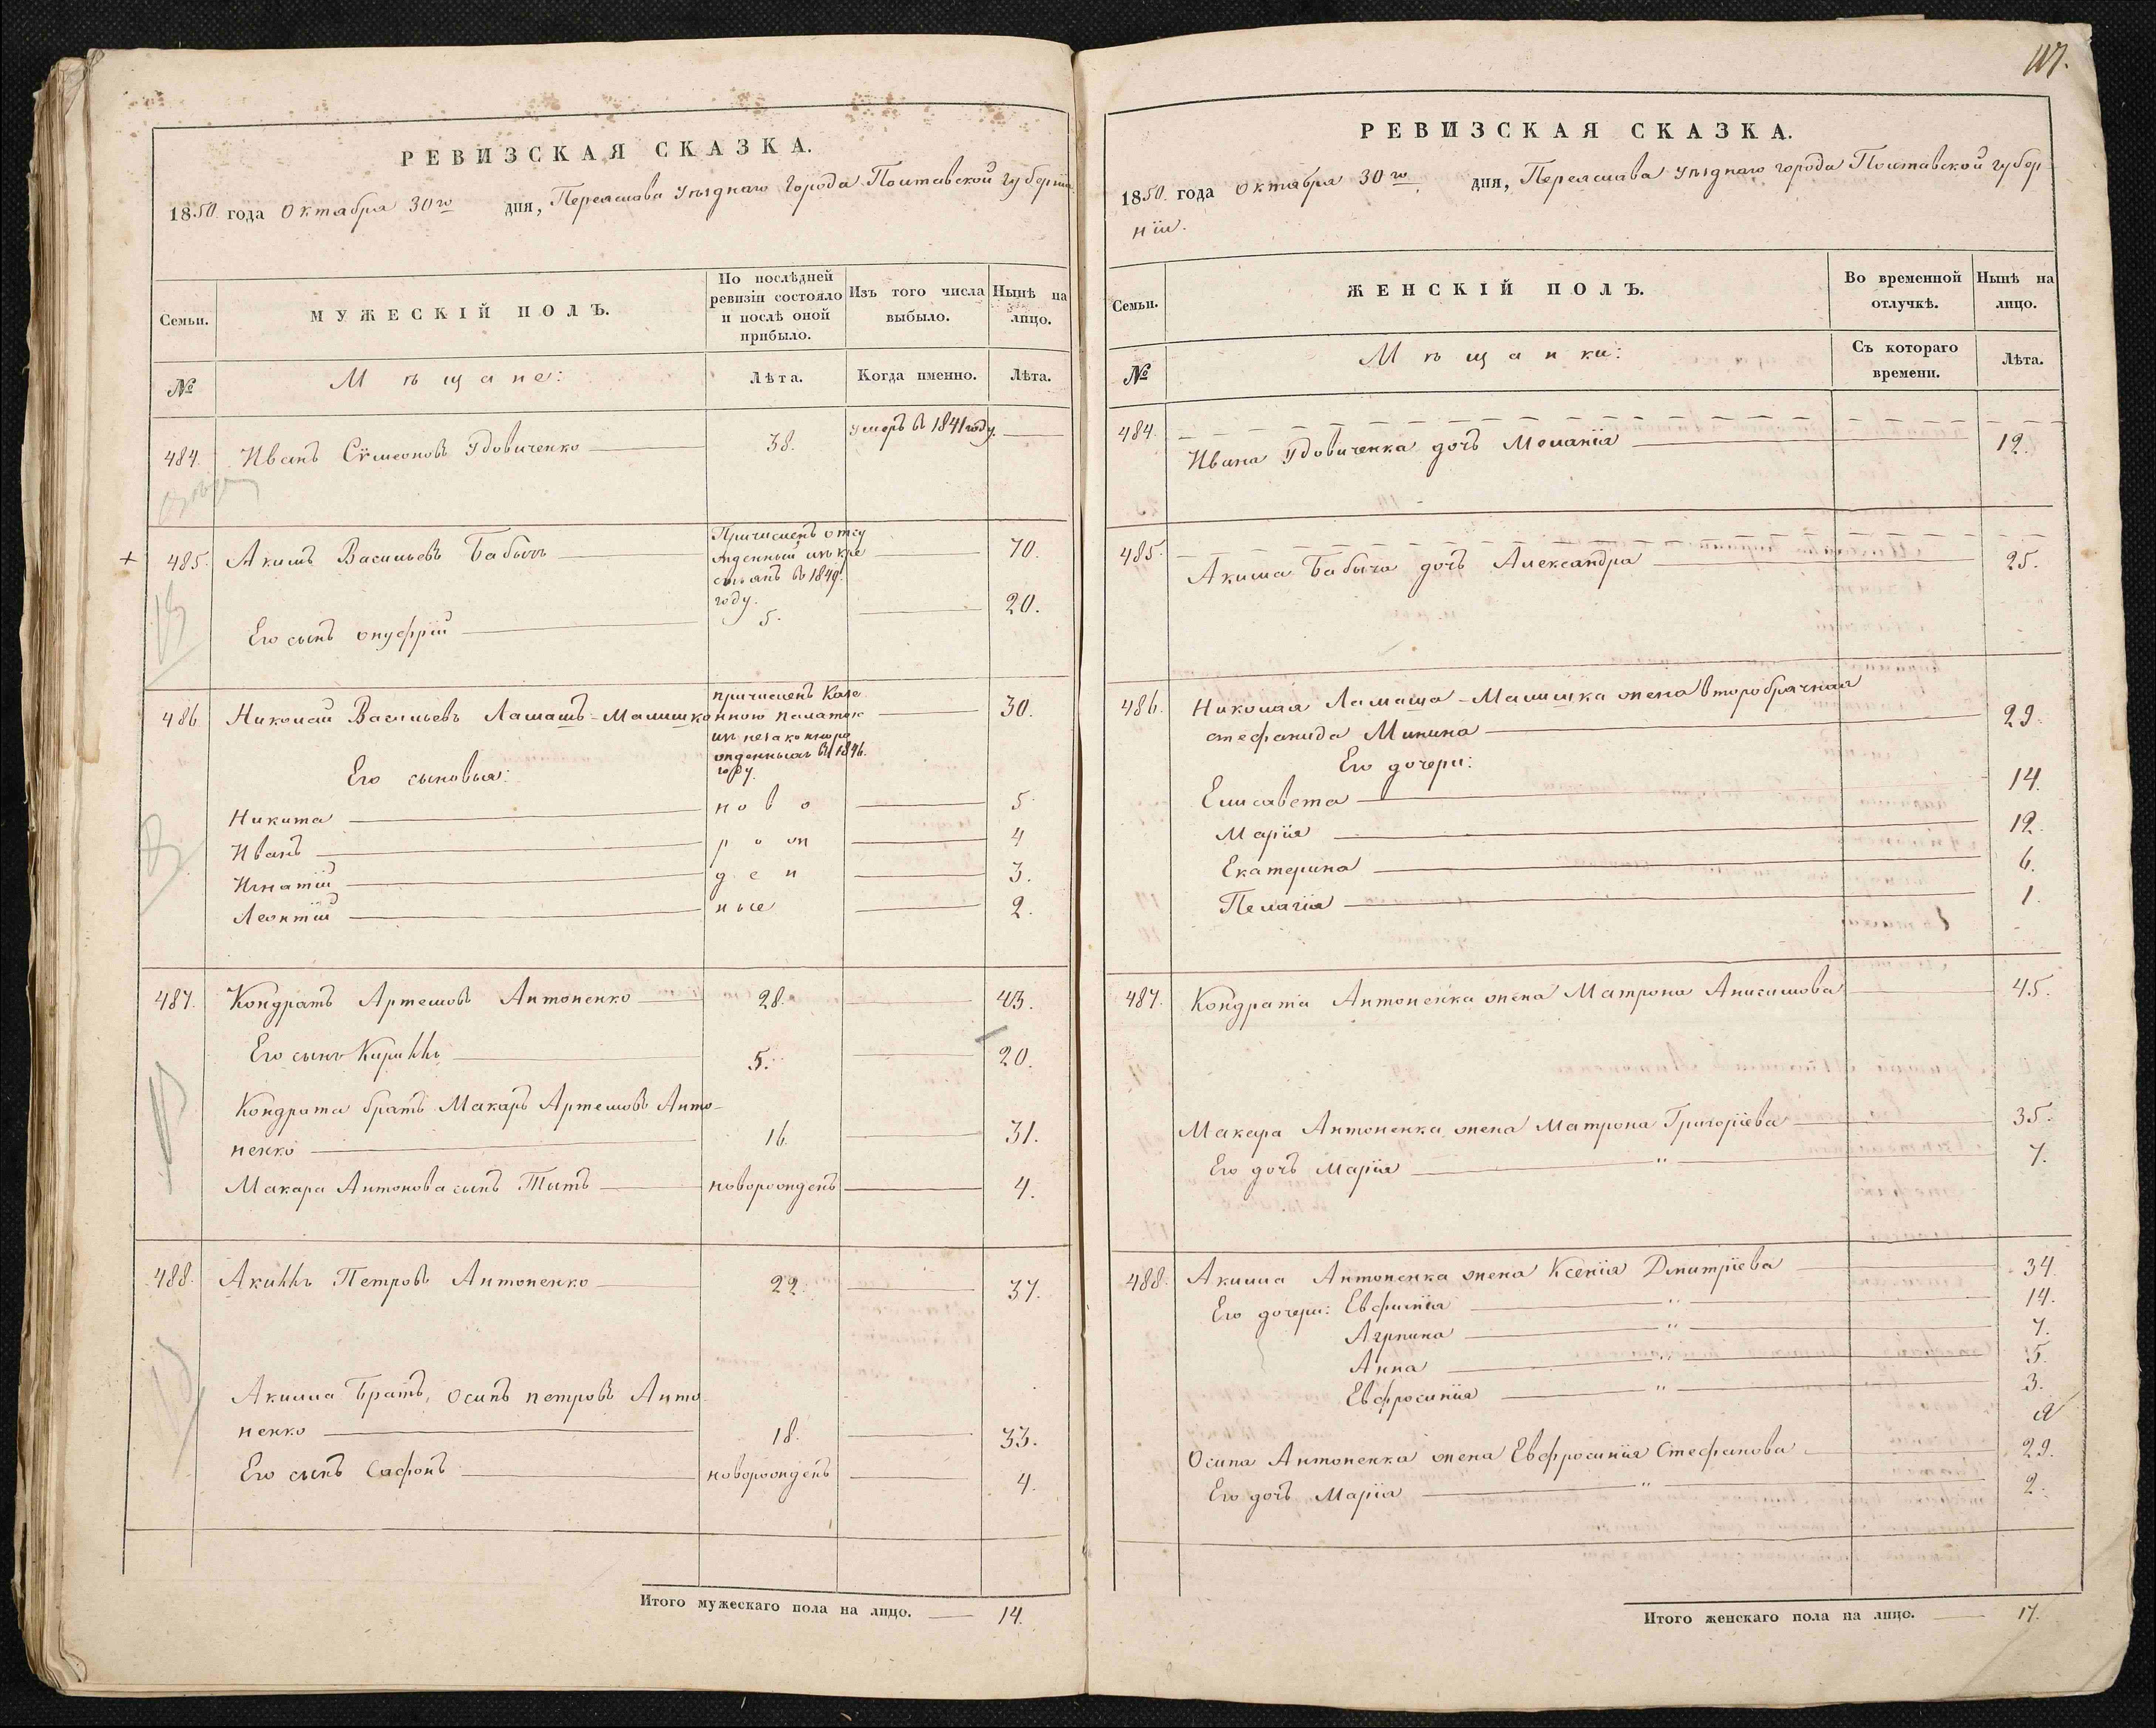 РЕВИЗСКАЯ СКАЗКА.
1850 года Октября 30го дня, Переяслова Уѣзднаго Города Полтавской губерніи
Семьи.
МУЖЕСКІЙ ПОЛЪ.
По послѣдней ревизіи состояло и послѣ оной прибыло.
Изъ того числа выбыло.
Нынѣ на лицо.
№
Мѣщане:
Лѣта.
Когда именно.
Лѣта.
484. Иванъ Сѵмеоновъ Удовиченко 38. умеръ въ 1841 году.
485. Акимъ Васильевъ Бабичъ 70.
Причисленъ отсу
жденный изъ кре
стьянъ въ 1849.
году.
Его сынъ Онуфрій 5. 20.
486 Николай Васильевъ Ламашъ-Малишко 30.
причисленъ Казе
нною палатою
изъ незаконноро
жденныхъ въ 1846.
году.
Его сыновья:
Никита ново 5
Иванъ рож 4
Игнатій ден 3.
Леонтій ные 2.
487. Кондратъ Артемовъ Антоненко 28. 43.
Его сынъ Кириллъ 5. 20.
Кондрата братъ Макаръ Артемовъ Анто-
ненко 16. 31.
Макара Антонова сынъ Титъ новорожденъ 4.
488. Акиллъ Петровъ Антоненко 22. 37.
Акилла Братъ, Осипъ Петровъ Анто
ненко 18. 33.
Его сынъ Сафонъ новорожденъ 4.
Итого мужескаго пола на лицо. 14.
117.
РЕВИЗСКАЯ СКАЗКА.
1850. года Октября 30го дня, Переяслава Уѣзднаго города Полтавской губер
ніи.
Семьи.
ЖЕНСКІЙ ПОЛЪ.
Во временной отлучкѣ.
Нынѣ на лицо.
№
Мѣщанки:
Съ котораго времени.
Лѣта.
484.
Ивана Удовиченка дочь Меланія 12.
485.
Акима Бабича дочь Александра 25.
486. Николая Ламаша-Малишка жена второбрачная
Стефанида Минина 29.
Его дочери:
Елисавета 14.
Марія 12.
Екатерина 6.
Пелагія 1.
487. Кондрата Антоненка жена Матрона Анисимова 45.
Макара Антоненка жена Матрона Григоріева 35.
Его дочь Марія " 7.
488. Акилла Антоненка жена Ксенія Дмитріева 34
Его дочери: Евфимія " 14.
Агрпина " 7.
Анна " 5
Евфросинія " 3.
Осипа Антоненка жена Евфросинія Стефанова 29.
Его дочь Марія " 2.
Итого женскаго пола на лицо. 17.